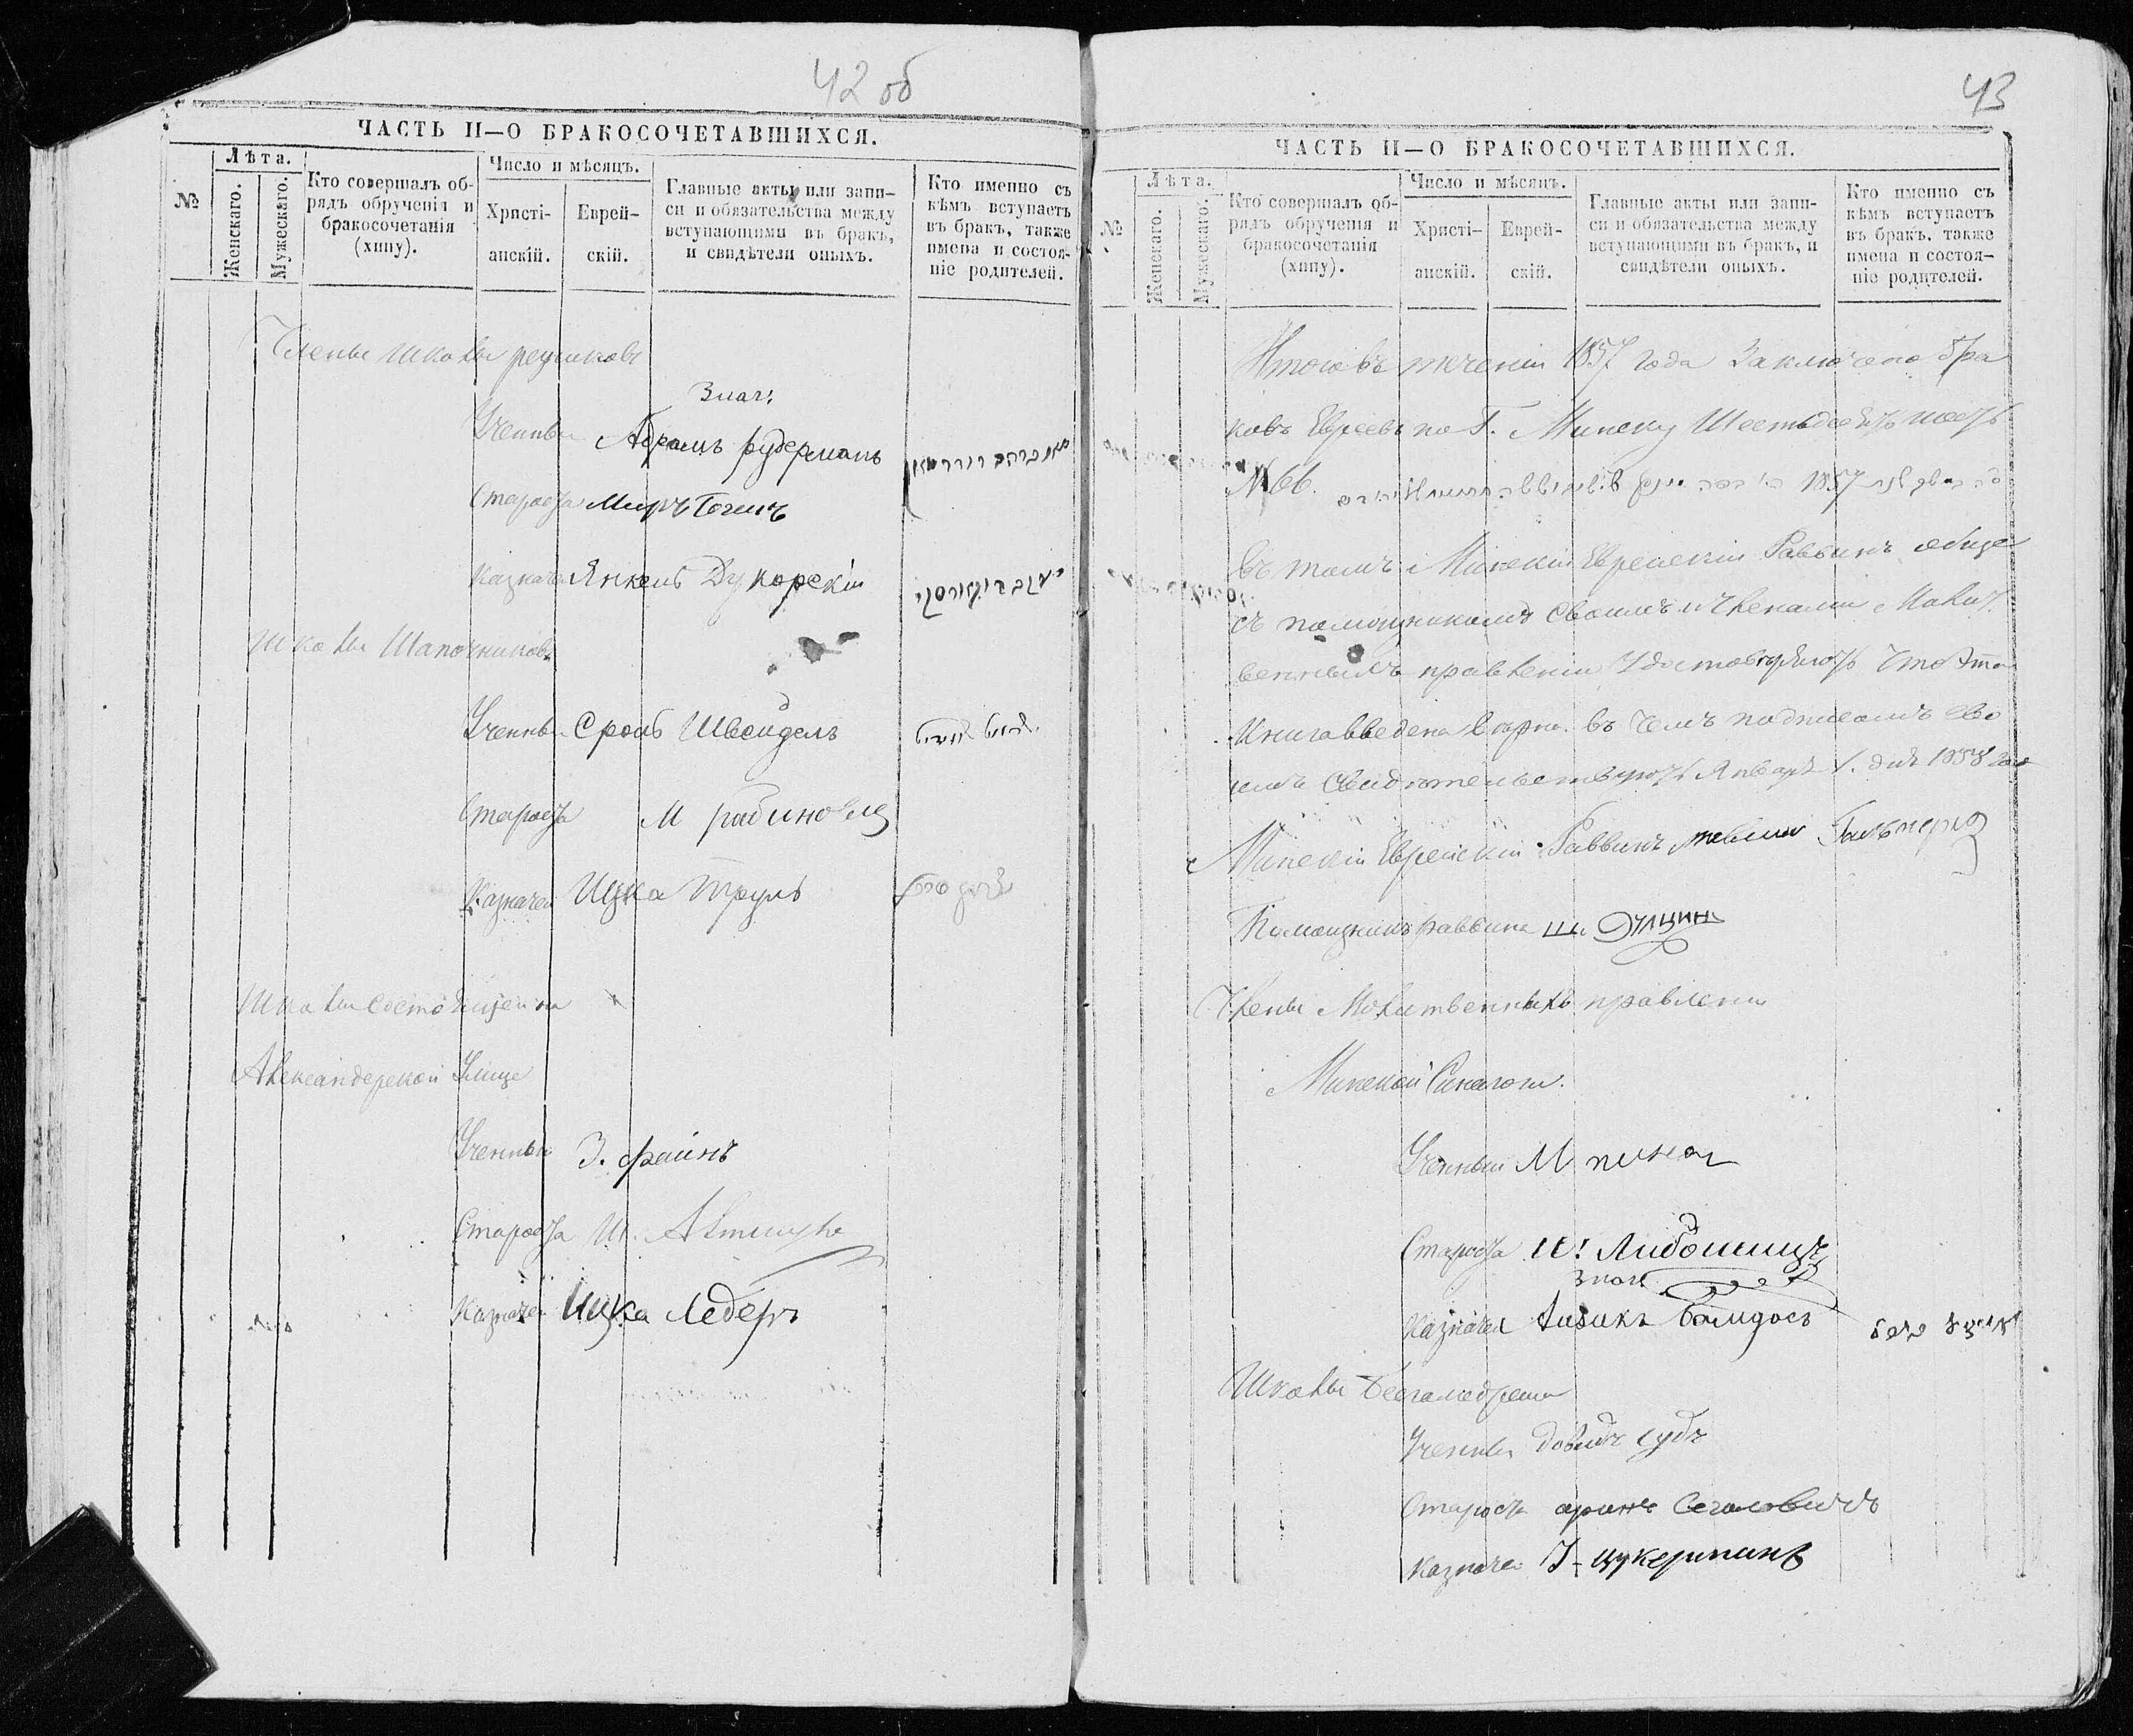 42 об
ЧАСТЬ II—О БРАКОСОЧЕТАВШИХСЯ.
№
Лѣта.
Женскаго.
Мужескаго.
Кто совершалъ об-
рядъ обрученія и
бракосочетанія
(хипу).
Число и мѣсяцъ.
Христі-
анскій.
Еврей-
скій.
Главные акты или запи-
си и обязательства между
вступающими въ бракъ,
и свидѣтели оныхъ.
Кто именно съ
кѣмъ вступаетъ
въ бракъ, также
имена и состоя-
ніе родителей.
Члены школы резниковъ
Знач:
Ученный Абрамъ рудерманъ
Староста Миръ
Казначей Янкель Дукорскій
школы Шапочниковъ
Ученный Сроль Швейдель
Староста М рабиновиц
Казначей Ицка
школы состоящей на
Александерской Улице
Ученный З. файнъ
Староста Ш.
Казначей Ицка Ледеръ
43
ЧАСТЬ II—О БРАКОСОЧЕТАВШИХСЯ.
№
Лѣта.
Женскаго.
Мужескаго.
Кто совершалъ об-
рядъ обрученія и
бракосочетанія
(хипу).
Число и мѣсяцъ.
Христі-
анскій.
Еврей-
скій.
Главные акты или запи-
си и обязательства между
вступающими въ бракъ, и
свидѣтели оныхъ.
Кто именно съ
кѣмъ вступаетъ
въ бракъ. также
имена и состоя-
ніе родителей.
Итого въ теченіи 1857 года Заключено бра
ковъ Евреевъ по Г. Минску Шестьдесятъ шесть
№ 66. 1857
въ томъ Минскій Еврейскій Раввинъ обще
съ помощникомъ своимъ и членами Молит
веннымъ правленіи Удостовѣряютъ что эта
Книга введена верно. въ чемъ подписомъ сво
имъ свидѣтельствуютъ Январъ 1. дня 1858 года
Минскій Еврейскій Раввинъ Гальперн
Помощникъ раввина Ш. Элцинъ
Члены Молитвенныхъ правленіи
Минской Синагоги.
Ученный М пинес
Староста И:
Знач
Казначей Айзикъ
Школы Бесгамедреша
Ученный довидъ
Староста аронъ Сегаловичъ
Казначей I- цукерманъ